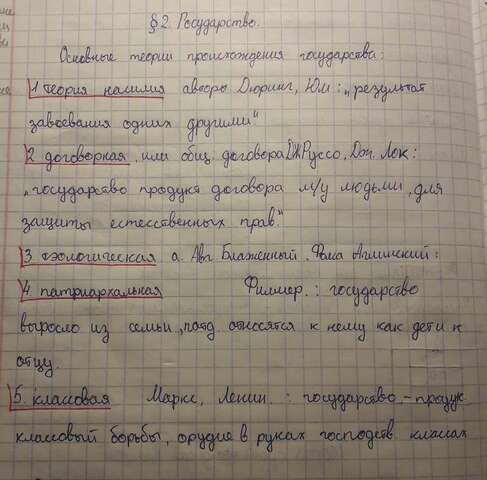 §2. Государство.
Основные теории происхождения государства:
1 теория насилия авторы Дюринг, Юм : „результат
завоевания одних другими"
2 договорная, или общ. договора ДЖРуссо, Дж. Лок:
„государство продукт договора м/у людьми, для
защиты естесственных прав."
3 теологическая а. Авг. Блаженный. Фома Аквинский:
4. патриархальная Филмер. : государство
выросло из семьи, подд. относятся к нему как дети к
отцу.
5. классовая Маркс, Ленин. : государство - продук
классовый борьбы, орудие в руках господств классах